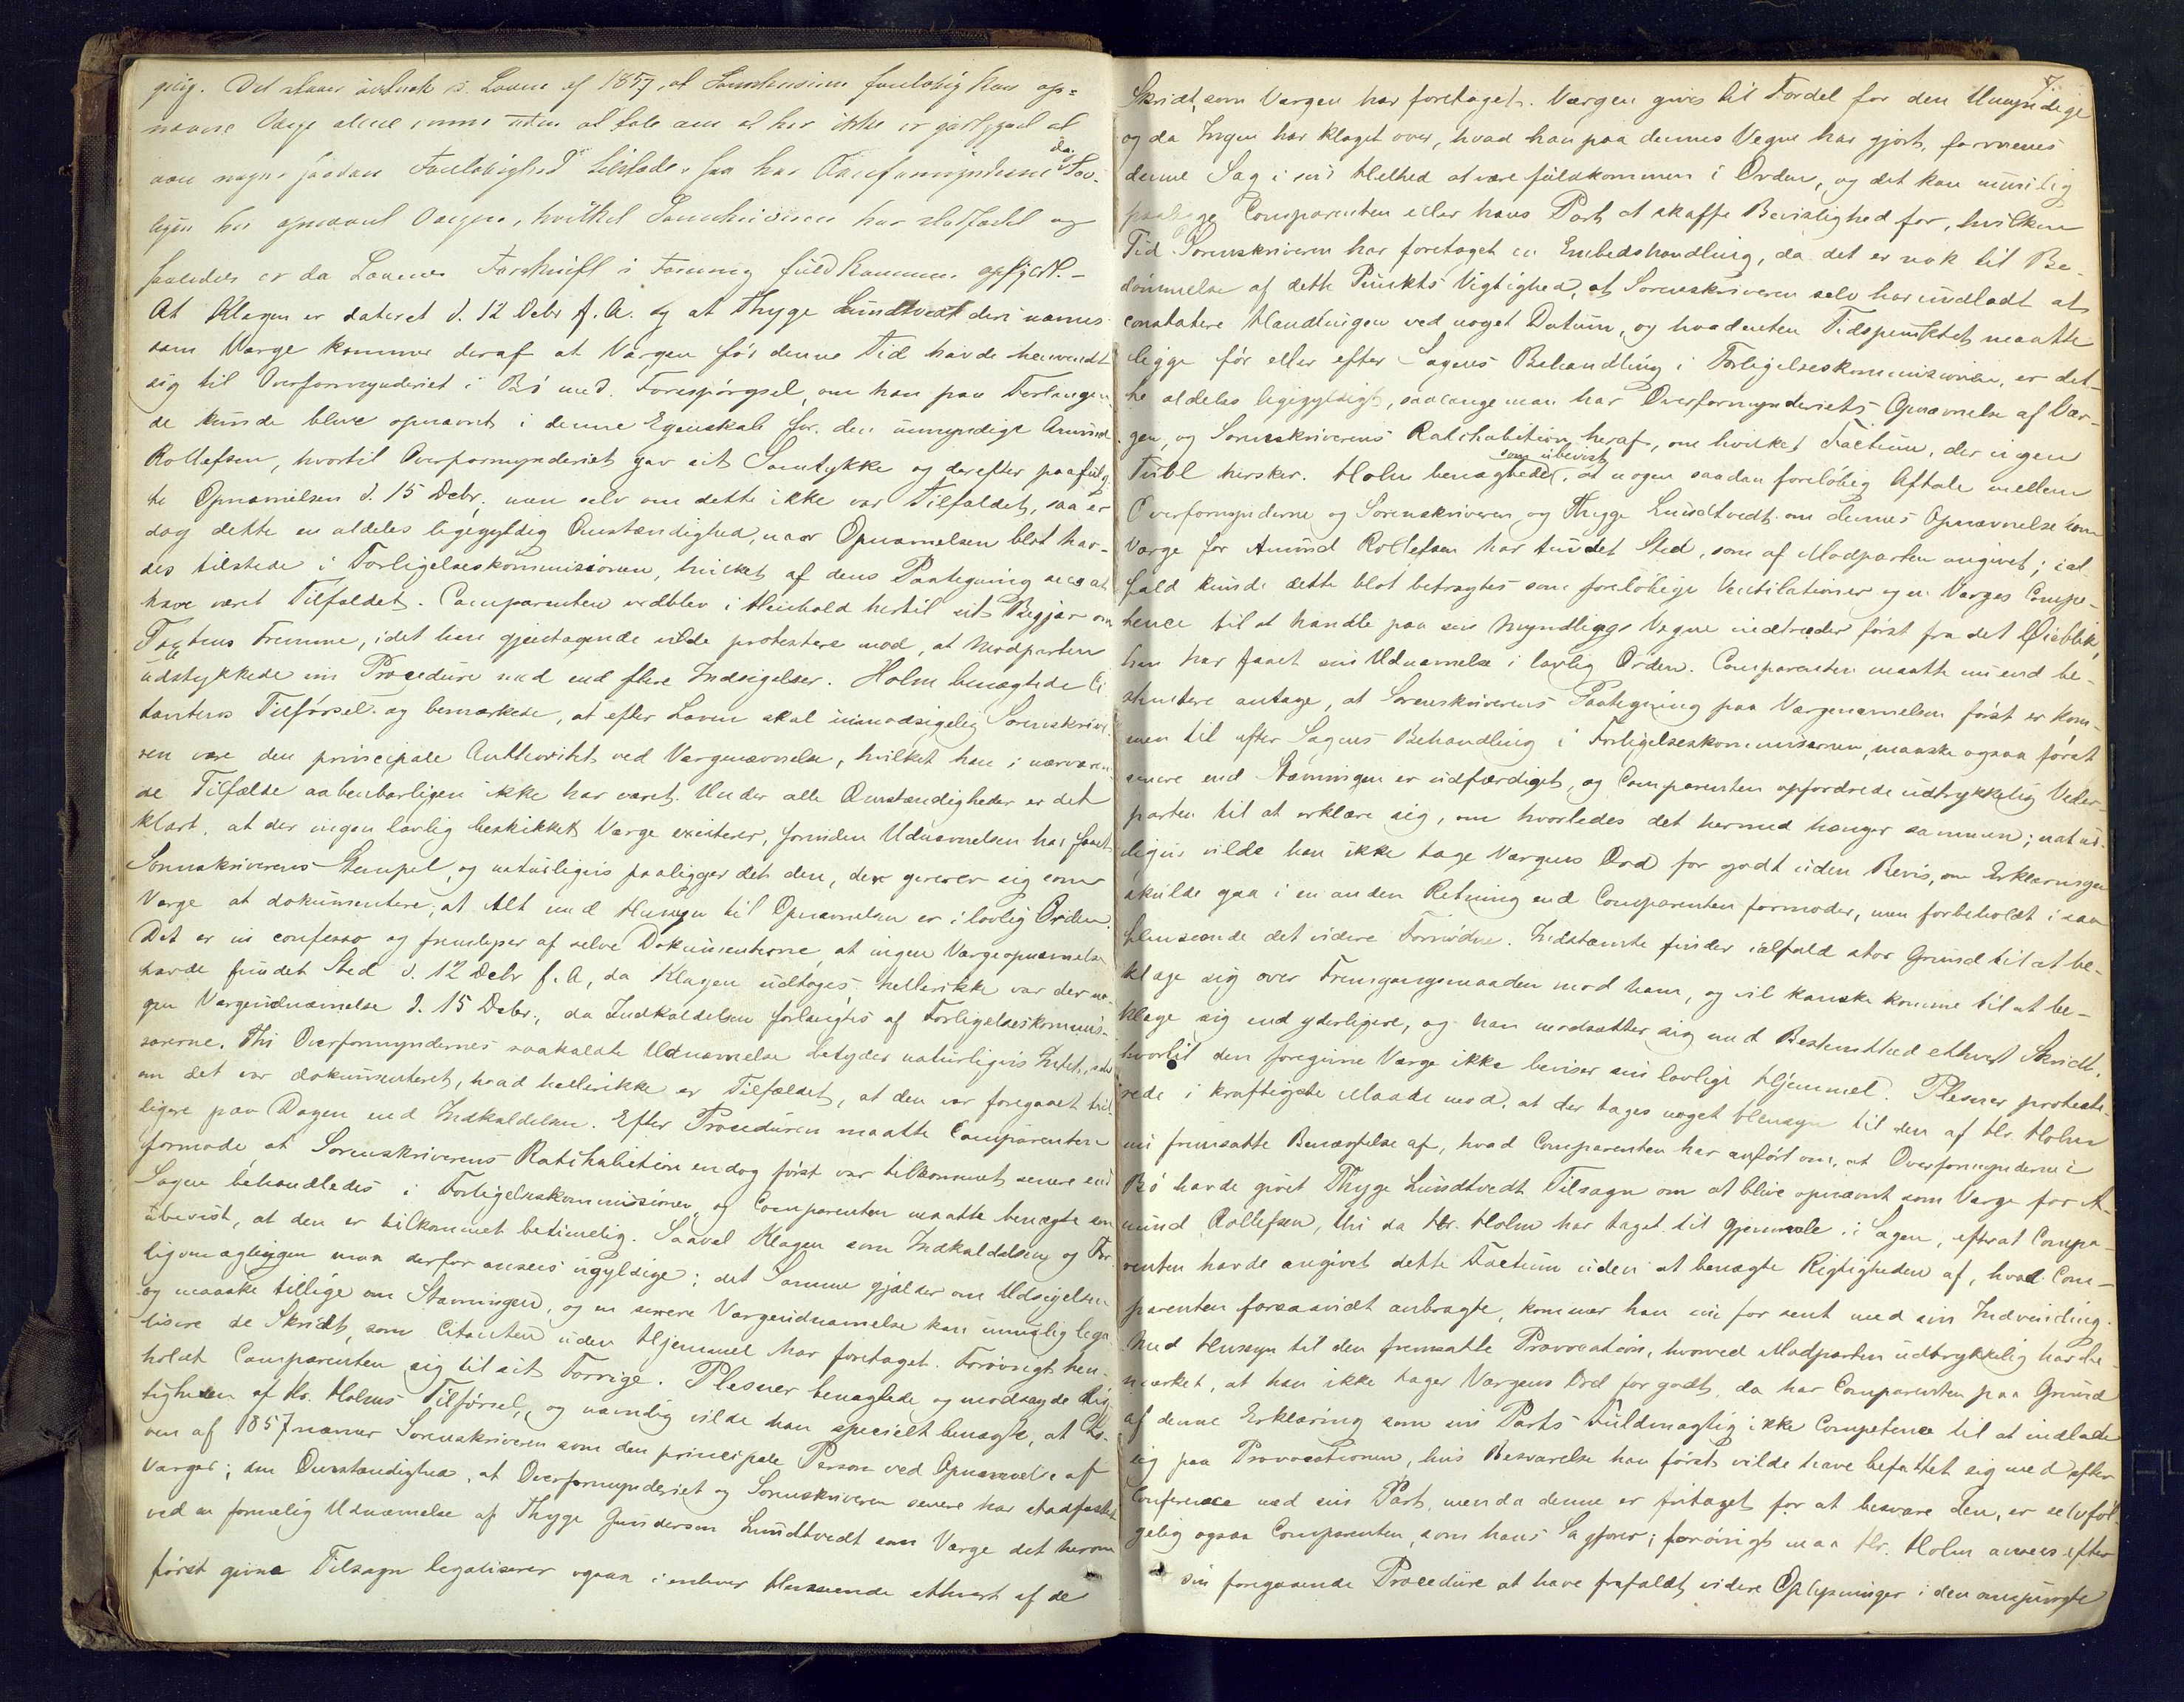 gelig. Det staaer udtrykt i Loven af 1857, at Sorenskriveren foreløbig kan op-
nævne Værge alene, uden at tale om at her ikke er godtgjort at
nogen saadan Foreløbighed tilstede, saa har Overformynderne da
hvilket Sorenskriveren har stadfæstet og
saaledes er da Lovens Forskrift i Form og fuldkommen opfyldt. -
At Klagen er dateret d. 12 Decbr f. A. og at Thyge Lundtvedt deri nævnes
som Værge kommer deraf at Værgen før denne Tid havde henvendt
sig til Overformynderiet i Bø med Forespørgsel, om han paa Forlangen-
de kunde blive opnævnt i denne Egenskab for den umyndige Amund
Rollefsen, hvortil Overformynderiet gav sit Samtykke og derefter paafulg-
te Opnævnelsen d. 15 Decbr; men selv om dette ikke var Tilfældet, saa er
dog dette en aldeles ligegyldig Omstændighed, naar Opnævnelsen blot hav-
des tilstede i Forligelseskommissionen, hvilket af dens Paategning sees at
have været Tilfældet. Comparenten vedblev i Henhold hertil sit Begjær om
Fremme, idet han gjentagende vilde protestere mod, at Modparten
udstykkede sin Procedure med end flere Indsigelser. Holm benægtede Ci-
tantens Tilførsel og bemærkede, at efter Loven skal uimodsigelig Sorenskrive-
ren være den principale Authoritet ved Værgenævnelse, hvilket han i nærværen-
de Tilfælde aabenbarligen ikke har været. Under alle Omstændigheder er det
klart, at der ingen lovlig beskikket Værge existerer, forinden Udnævnelsen har faaet
Sorenskriverens Stempel, og naturligvis paaligger det den, der gererer sig som
Værge at dokumentere, at Alt med Hensyn til Opnævnelsen er i lovlig Orden.
Det er in confesso og fremlyser af selve Dokumenterne, at ingen Værgeopnævnelse
havde fundet Sted d. 12 Decbr f. A, da Klagen udtoges; hellerikke var der no-
gen Værgeudnævnelse d. 15 Decbr., da Indkaldelsen forlangtes af Forligelseskommis-
særerne. Thi Overformyndernes saakaldte Udnævnelse betyder naturligvis Intet, selv
om det var dokumenteret, hvad hellerikke er Tilfældet, at den var foregaaet tid-
ligere paa Dagen end Indkaldelsen. Efter Proceduren maatte Comparenten
formode at Sorenskriverens Ratihabition endog først var tilkommet senere end
Sagen behandledes i Forligelseskommissionen, og Comparenten maatte benægte som
ubevist, at den er tilkommet betimelig. Saavel Klagen som Indkaldelsen og For-
ligsmæglingen maa derfor ansees ugyldige; det Samme gjælder om Udsigelsen
og maaske tillige om Stævningen, og en senere Værgeudnævnelse kan umulig lega-
lisere de Skridt, som Citanten uden Hjemmel har foretaget. Forøvrigt hen-
holdt Comparenten sig til sit Forrige. Plesner benægtede og modsagde Rig-
tigheden af Hr. Holms Tilførsel, og navnlig vilde han specielt benægte, at Lo-
ven af 1857 nævner Sorenskriveren som den principale Person ved Opnævnelse af
Værger; den Omstændighed, at Overformynderiet og Sorenskriveren senere har stadfæstet
ved en formelig Udnævnelse af Thyge Gundersen Lundtvedt som Værge det herom
først givne Tilsagn legaliserer ogsaa i enhver Henseende ethvert af de
7.
Skridt, som Værgen har foretaget. Værgen gives til Fordel for den Umyndige
og da Ingen har klaget over, hvad han paa dennes Vegne har gjort, formenes
denne Sag i sin Helhed at være fuldkommen i Orden, og det kan umulig
paalægge Comparenten eller hans Part at skaffe Bevislighed for, hvilken
Tid Sorenskriveren har foretaget en Embedshandling, da det er nok til Be-
dømmelse af dette Punkts Vigtighed, at Sorenskriveren selv har undladt at
constatere Handlingen ved noget Datum, og hvadenten Tidspunktet maatte
ligge før eller efter Sagens Behandling i Forligelseskommissionen, er det-
te aldeles ligegyldigt, saalænge man har Overformynderiets Opnævnelse af Vær-
gen, og Sorenskriverens Ratihabition heraf, om hvilket Factum, der ingen
Tvivl hersker. Holm benægtede som ubevist, at nogen saadan foreløbig Aftale mellem
Overformynderne og Sorenskriveren og Thyge Lundtvedt om dennes Opnævnelse som
Værge for Amund Rollefsen har fundet Sted, som af Modparten angivet; ial-
fald kunde dette blot betragtes som foreløbige Ventilationer og en Værges Compe-
tence til at handle paa sin Myndlings Vegne indtræder først fra det Øieblik,
han har faaet sin Udnævnelse i lovlig Orden. Comparenten maatte nu end be-
stemtere antage, at Sorenskriverens Paategning paa Værgenævnelsen først er kom-
men til efter Sagens Behandling i Forligelseskommissionen, maaske ogsaa først
senere end Stævningen er udfærdiget, og Comparenten opfordrede udtrykkelig Veder-
parten til at erklære sig, om hvorledes det hermed hænger sammen; natur-
ligvis vilde han ikke tage Værgens Ord for godt uden Bevis, om Erklæringen
skulde gaa i en anden Retning end Comparenten formoder, men forbeholdt i saa
Henseende det videre Fornødne. Indstævnte finder ialfald stor Grund til at be-
klage sig over Fremgangsmaaden mod ham, og vil kanske komme til at be-
klage sig end yderligere, og han modsætter sig med Bestemthed ethvert Skridt,
hvortil den foregivne Værge ikke beviser sin lovlige Hjemmel. Plesner proteste-
rede i kraftigste Maade mod, at der tages noget Hensyn til den af Hr. Holm
nu fremsatte Benægtelse af, hvad Comparenten har anført om, at Overformynderne i
Bø havde givet Thyge Lundtvedt Tilsagn om at blive opnævnt som Værge for A-
mund Rollefsen, thi da Hr. Holm har taget til Gjenmæle i Sagen, efterat Compa-
renten havde angivet dette Factum uden at benægte Rigtigheden af, hvad Com-
parenten forsaavidt anbragte, kommer han nu for sent med sin Indvending.
Med Hensyn til den fremsatte Provocation, hvorved Modparten udtrykkelig har be-
mærket, at han ikke tager Værgens Ord for godt, da har Comparenten paa Grund
af denne Erklæring som sin Parts Fuldmægtig ikke Competence til at indlade
sig paa Provocationen, hvis Besvarelse han først vilde have befattet sig med efter
Conference med sin Part, men da denne er fritaget for at besvare den, er selvføl-
gelig ogsaa Comparenten, som hans Sagfører; forøvrigt maa Hr. Holm ansees efter
sin foregaaende Procedure at have frafaldt videre Oplysninger i den omspurgte